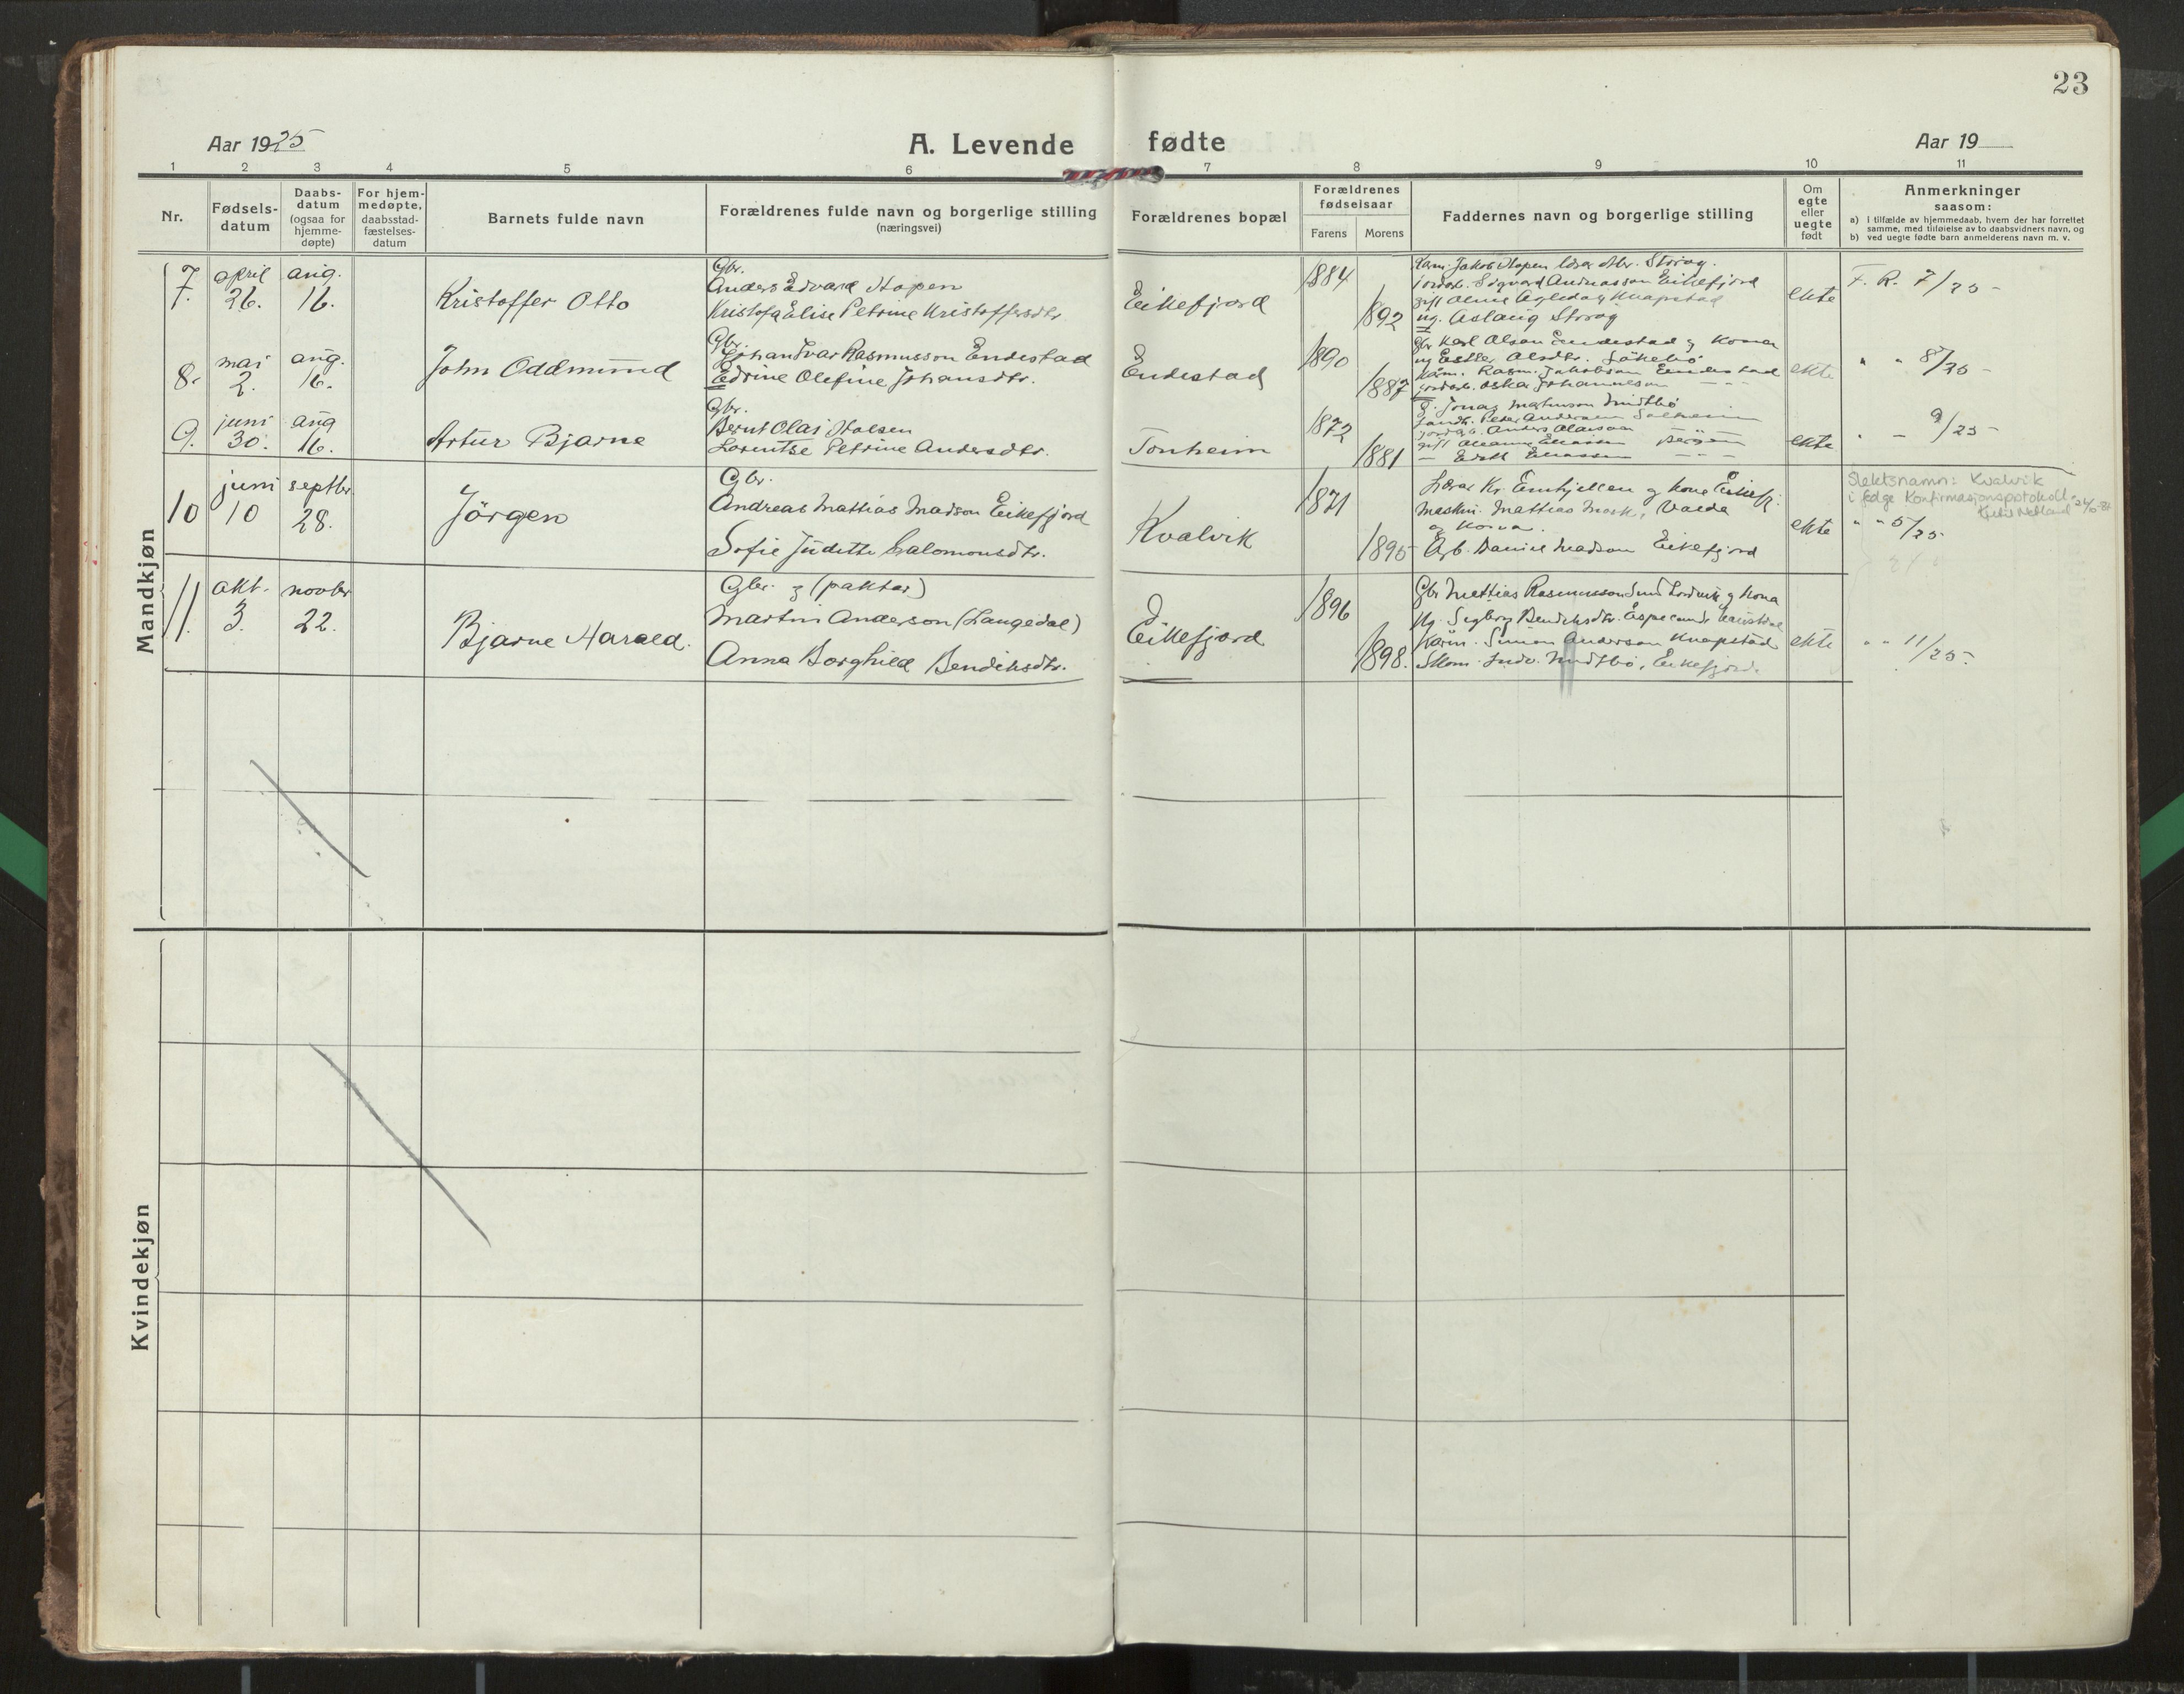 23
Aar 1925
A. Levende fødte
Aar 19
1 2 3 4 5 6 7 8 9 10 11
Nr.
Fødsels-
datum
Daabs-
datum
(ogsaa for
hjemme-
døpte)
For hjem-
medøpte,
daabsstad-
fæstelses-
datum
Barnets fulde navn
Forældrenes fulde navn og borgerlige stilling
(næringsvei)
Forældrenes bopæl
Forældrenes
fødselsaar
Farens Morens
Faddernes navn og borgerlige stilling
Om
egte
eller
uegte
født
Anmerkninger
saasom:
a) I tilfælde av hjemmedaab, hvem der har forrettet
samme, med tilføielse av to daabsvidners navn, og
b) ved uegte fødte barn anmelderens navn m. v.
Mandkjøn
7. april 26. aug. 16.
Kristoffer Otto
Gbr.
Anders Edvard Hopen
Kristofa Elise Petrine Kristoffersdtr
Eikefjord
1884
1892
Jakob Hopen
Sigvard Andreasson Eikefjord
Knapstad
ug. Aslaug
ekte
F. R. 7/25 -
8. mai 2. aug. 16.
John Oddmund
Gbr.
Johan Ivar Rasmusson Endestad
Edrine Olefine Johansdtr.
Endestad
1890
1887
Gbr Karl Olson Endestad og Kona
ug Ester Olsdtr.
Rasm. Jakobson Endestad
Oskar Johanneson
ekte
" " 8/25 -
9. juni 30. aug 16.
Artur Bjarne
Gbr.
Bernt Olai
Lorentse Petrine Andersdtr.
Tonheim
1872
1881
Jonas Mathisson Midtbö
Peder Anderson Solheim
Anders Olavson
Bergen
ekte
" - 9/25 -
10 juni 10 septbr. 28.
Jörgen
Gbr.
Andreas Mattias Madson Eikefjord
Sofie Judithe Salomonsdtr.
Kvalvik
1871
1895
Lærar Kr. Emhjellen og kone Eikefj.
Maskin. Mattias Mork, Valde
og kona.
Gb. Daniel Madson Eikefjord
ekte
Slektsnamn: Kvalvik
i følge Konfirmasjonsprotokoll
" " 5/25.
11. okt. 3. novbr 22.
Bjarne Harald.
Gbr. og (paktar)
Martin Anderson (Langedal)
Anna Borghild Bendiksdtr.
Eikefjord
1896
1898.
Gbr Mattias Rasmusson og Kona
Ug. Sigborg Bendiksdtr. Espeland
Simon Anderson Knapstad
Midtbö, Eikefjord.
ekte
" " 11/25.
Kvindekjøn